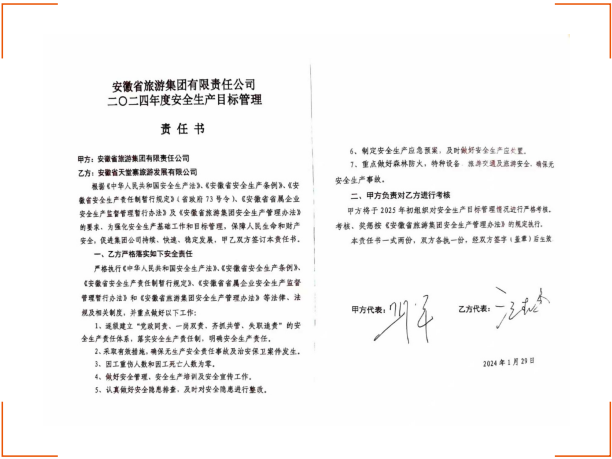 安徽省旅游集团有限责任公司
二〇二四年度安全生产目标管理
责 任 书
甲方：安徽省旅游集团有限责任公司
乙方：安徽省天堂寨旅游发展有限公司
根据《中华人民共和国安全生产法》、《安徽省安全生产条例》、《安
徽省安全生产责任制暂行规定》（省政府 73 号令）、《安徽省省属企业
安全生产监督管理暂行办法》及《安徽省旅游集团安全生产管理办法》
的要求，为强化安全生产基础工作和目标管理，保障人民生命和财产
安全，促进集团公司持续、快速、稳定发展，甲乙双方签订本责任书。
一、乙方严格落实如下安全责任
严格执行《中华人民共和国安全生产法》、《安徽省安全生产条例》、
《安徽省安全生产责任制暂行规定》、《安徽省省属企业安全生产监督
管理暂行办法》和《安徽省旅游集团安全生产管理办法》等法律、法
规及相关制度，并重点做好以下工作：
1、逐级建立“党政同责、一岗双责、齐抓共管、失职追责”的安
全生产责任体系，落实安全生产责任制，明确安全生产责任。
2、采取有效措施，确保无生产安全责任事故及治安保卫案件发生。
3、因工重伤人数和因工死亡人数为零。
4、做好安全管理、安全生产培训及安全宣传工作。
5、认真做好安全隐患排查，及时对安全隐患进行整改。
6、制定安全生产应急预案，及时做好安全生产应处置。
7、重点做好森林防火、特种设备 旅游交通及旅游安全，确保无
安全生产事故。
二、甲方负责对乙方进行考核
甲方将于 2025 年初组织对安全生产目标管理情况进行严格考核。
考核、奖惩按《安徽省旅游集团安全生产管理办法》的规定执行。
本责任书一式两份，双方各执一份，经双方签字（盖章）后生效
甲方代表：
乙方代表：
2024 年 1 月 29 日